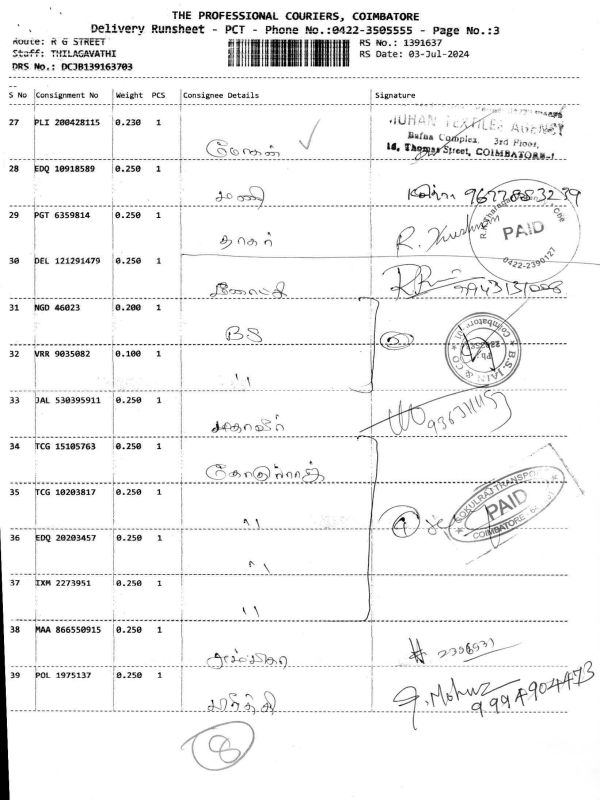 THE PROFESSIONAL COURIERS, COIMBATORE
Delivery Runsheet - PCT - Phone No.:0422-3505555 - Page No.:3
Route: R G STREET
RS No.: 1391637
Staff: THILAGAVATHI
RS Date: 03-Jul-2024
DRS No.: DCJB139163703
S No Consignment No Weight PCS Consignee Details Signature
27 PLI 200428115 0.230 1
MOHAN TEXTILES AGENCY
Bafna Complex, 3rd Floor,
18, Thomas Street, COIMBATORE-1
மோகன்
28 EDQ 10918589 0.250 1
மணி
9677883239
29 PGT 6359814 0.250 1
தாகர்
PAID
0422-2390127
30 DEL 121291479 0.250 1
31 NGD 46023 0.200 1
BS
2
B.S. JAIN & CO
Coimbatore
32 VRR 9035082 0.100 1
"
33 JAL 530395911 0.250 1
34 TCG 15105763 0.250 1
35 TCG 10203817 0.250 1
"
4
GOKULRAJ TRANSPORT
PAID
COIMBATORE
36 EDQ 20203457 0.250 1
"
37 IXM 2273951 0.250 1
"
38 MAA 866550915 0.250 1
39 POL 1975137 0.250 1
G. Mohan
9994904473
8